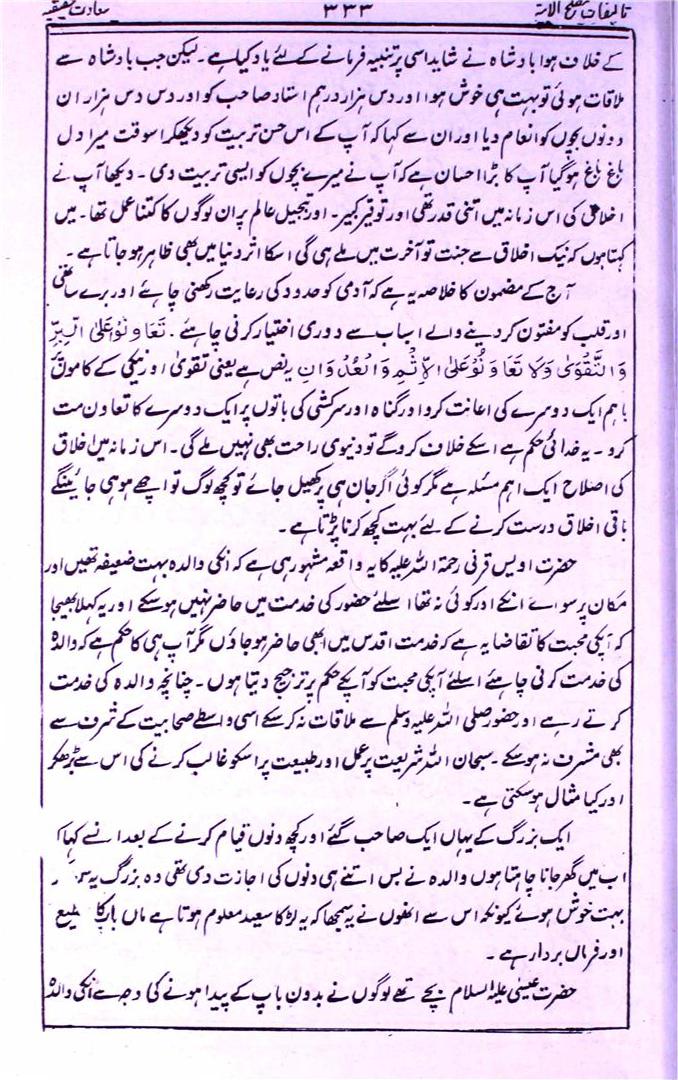 تالیفات مصلح الامۃ ۳۳۳ سعادت حقیقیہ
کے خلاف ہوا بادشاہ نے شاید اسی پر تنبیہ فرمانے کے لئے یاد کیا ہے۔ لیکن جب بادشاہ سے
ملاقات ہوئی تو بہت ہی خوش ہوا اور دس ہزار درہم استاد صاحب کو اور دس دس ہزار ان
دونوں بچوں کو انعام دیا اور ان سے کہا کہ آپ کے اس حسن تربیت کو دیکھکر اسوقت میرا دل
باغ باغ ہو گیا آپ کا بڑا احسان ہے کہ آپ نے میرے بچوں کو ایسی تربیت دی۔ دیکھا آپ نے
اخلاق کی اس زمانہ میں اتنی قدر تھی اور توقیر کبیر۔ اور تبجیل عالم پر ان لوگوں کا کتنا عمل تھا۔ میں
کہتا ہوں کہ نیک اخلاق سے جنت تو آخرت میں ملے ہی گی اسکا اثر دنیا میں بھی ظاہر ہو جاتا ہے۔
آج کے مضمون کا خلاصہ یہ ہے کہ آدمی کو حدود کی رعایت رکھنی چاہئے اور برے ساتھی
اور قلب کو مفتون کر دینے والے اسباب سے دوری اختیار کرنی چاہئے۔ تَعَاوَنُوْا عَلَی الْبِرِّ
وَالتَّقْوٰی وَلَا تَعَاوَنُوْا عَلَی الْاِثْمِ وَالْعُدْوَانِ یہ نص ہے یعنی تقویٰ اور نیکی کے کاموں پر
باہم ایک دوسرے کی اعانت کرو اور گناہ اور سرکشی کی باتوں پر ایک دوسرے کا تعاون مت
کرو۔ یہ خدائی حکم ہے اسکے خلاف کروگے تو دنیوی راحت بھی نہیں ملے گی۔ اس زمانہ میں اخلاق
کی اصلاح ایک اہم مسئلہ ہے مگر کوئی اگر جان ہی پر کھیل جائے تو کچھ لوگ تو اچھے ہو ہی جائینگے
باقی اخلاق درست کرنے کے لئے بہت کچھ کرنا پڑتا ہے۔
حضرت اویس قرنی رحمۃ اللہ علیہ کا یہ واقعہ مشہور ہی ہے کہ انکی والدہ بہت ضعیفہ تھیں اور
مکان پر سوائے انکے اور کوئی نہ تھا اسلئے حضور کی خدمت میں حاضر نہیں ہو سکے اور یہ کہلا بھیجا
کہ آپکی محبت کا تقاضا یہ ہے کہ خدمت اقدس میں ابھی حاضر ہو جاؤں مگر آپ ہی کا حکم ہے کہ والدہ
کی خدمت کرنی چاہئے اسلئے آپکی محبت کو آپکے حکم پر ترجیح دیتا ہوں۔ چنانچہ والدہ کی خدمت
کرتے رہے اور حضور صلی اللہ علیہ وسلم سے ملاقات نہ کر سکے اسی واسطے صحابیت کے شرف سے
بھی مشرف نہ ہو سکے۔ سبحان اللہ شریعت پر عمل اور طبیعت پر اسکو غالب کرنے کی اس سے بڑھکر
اور کیا مثال ہو سکتی ہے۔
ایک بزرگ کے یہاں ایک صاحب گئے اور کچھ دنوں قیام کرنے کے بعد ان سے کہا کہ
اب میں گھر جانا چاہتا ہوں والدہ نے بس اتنے ہی دنوں کی اجازت دی تھی وہ بزرگ یہ
بہت خوش ہوئے کیونکہ اس سے انھوں نے یہ سمجھا کہ یہ لڑکا سعید معلوم ہوتا ہے ماں باپ کا مطیع
اور فرماں بردار ہے۔
حضرت عیسیٰ علیہ السلام بچے تھے لوگوں نے بدون باپ کے پیدا ہونے کی وجہ سے انکی والدہ